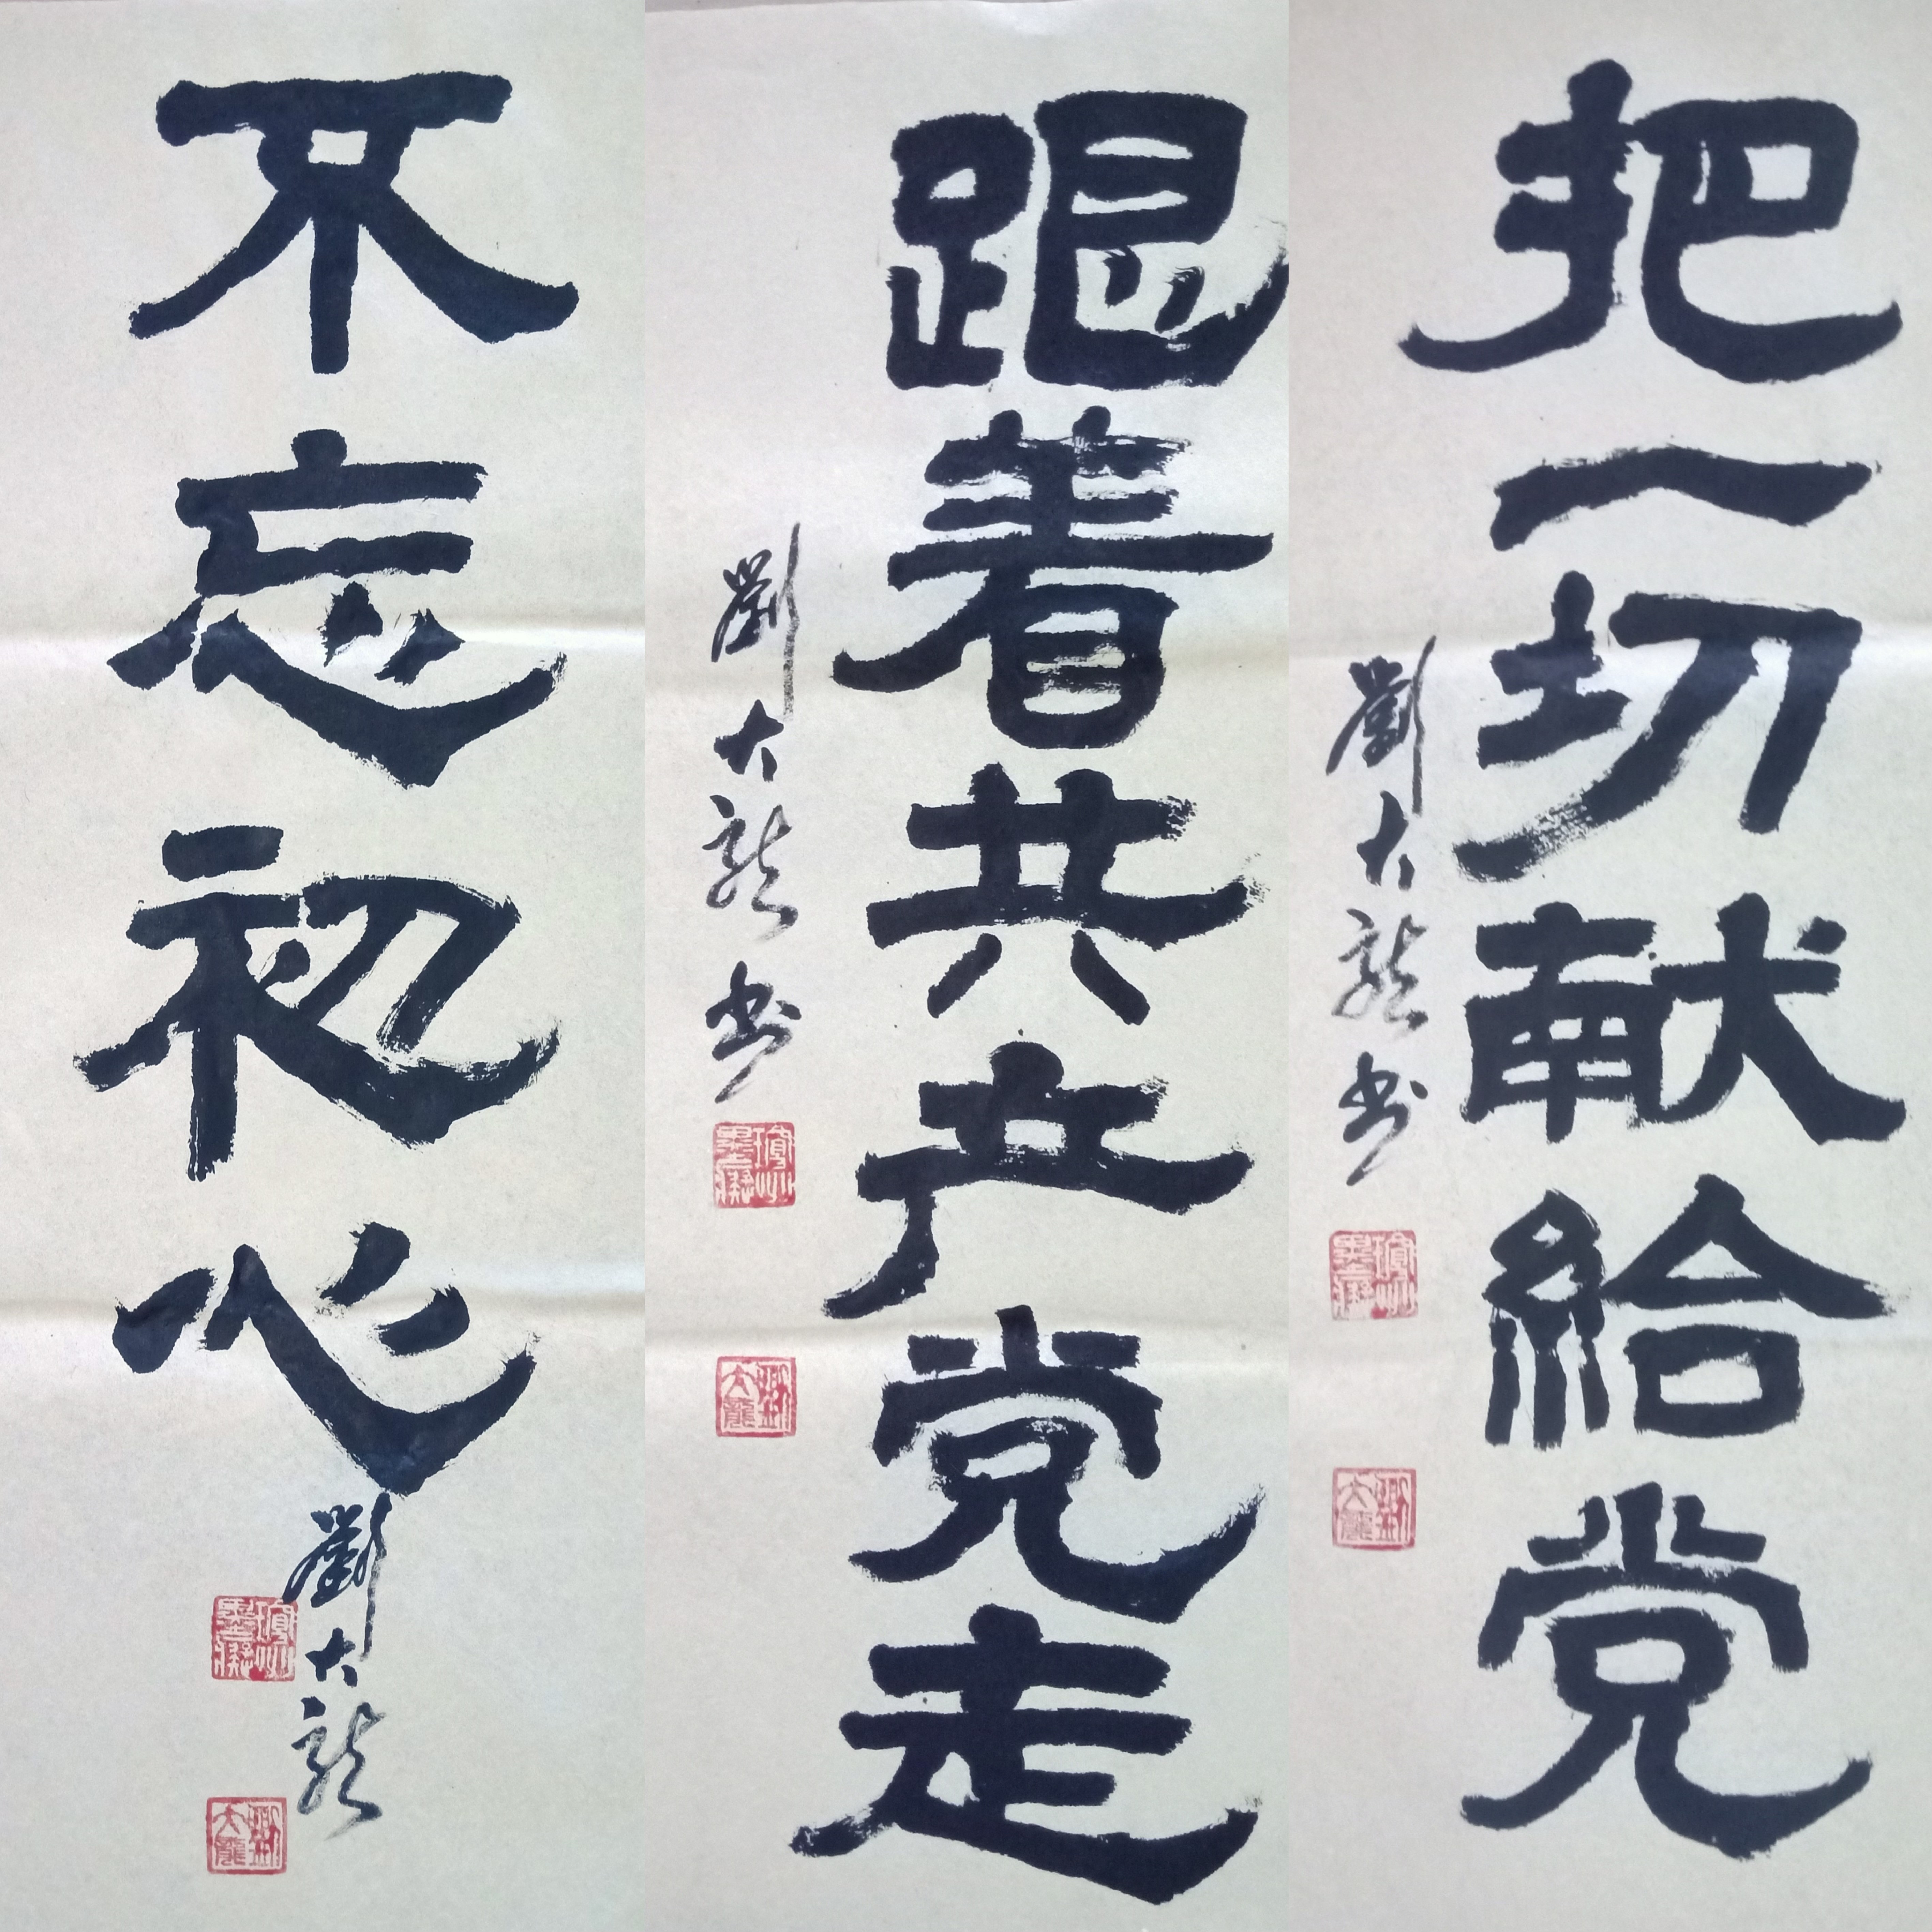 把一切献給党
劉大龙书
跟着共产党走
劉大龙书
不忘初心
劉大龙